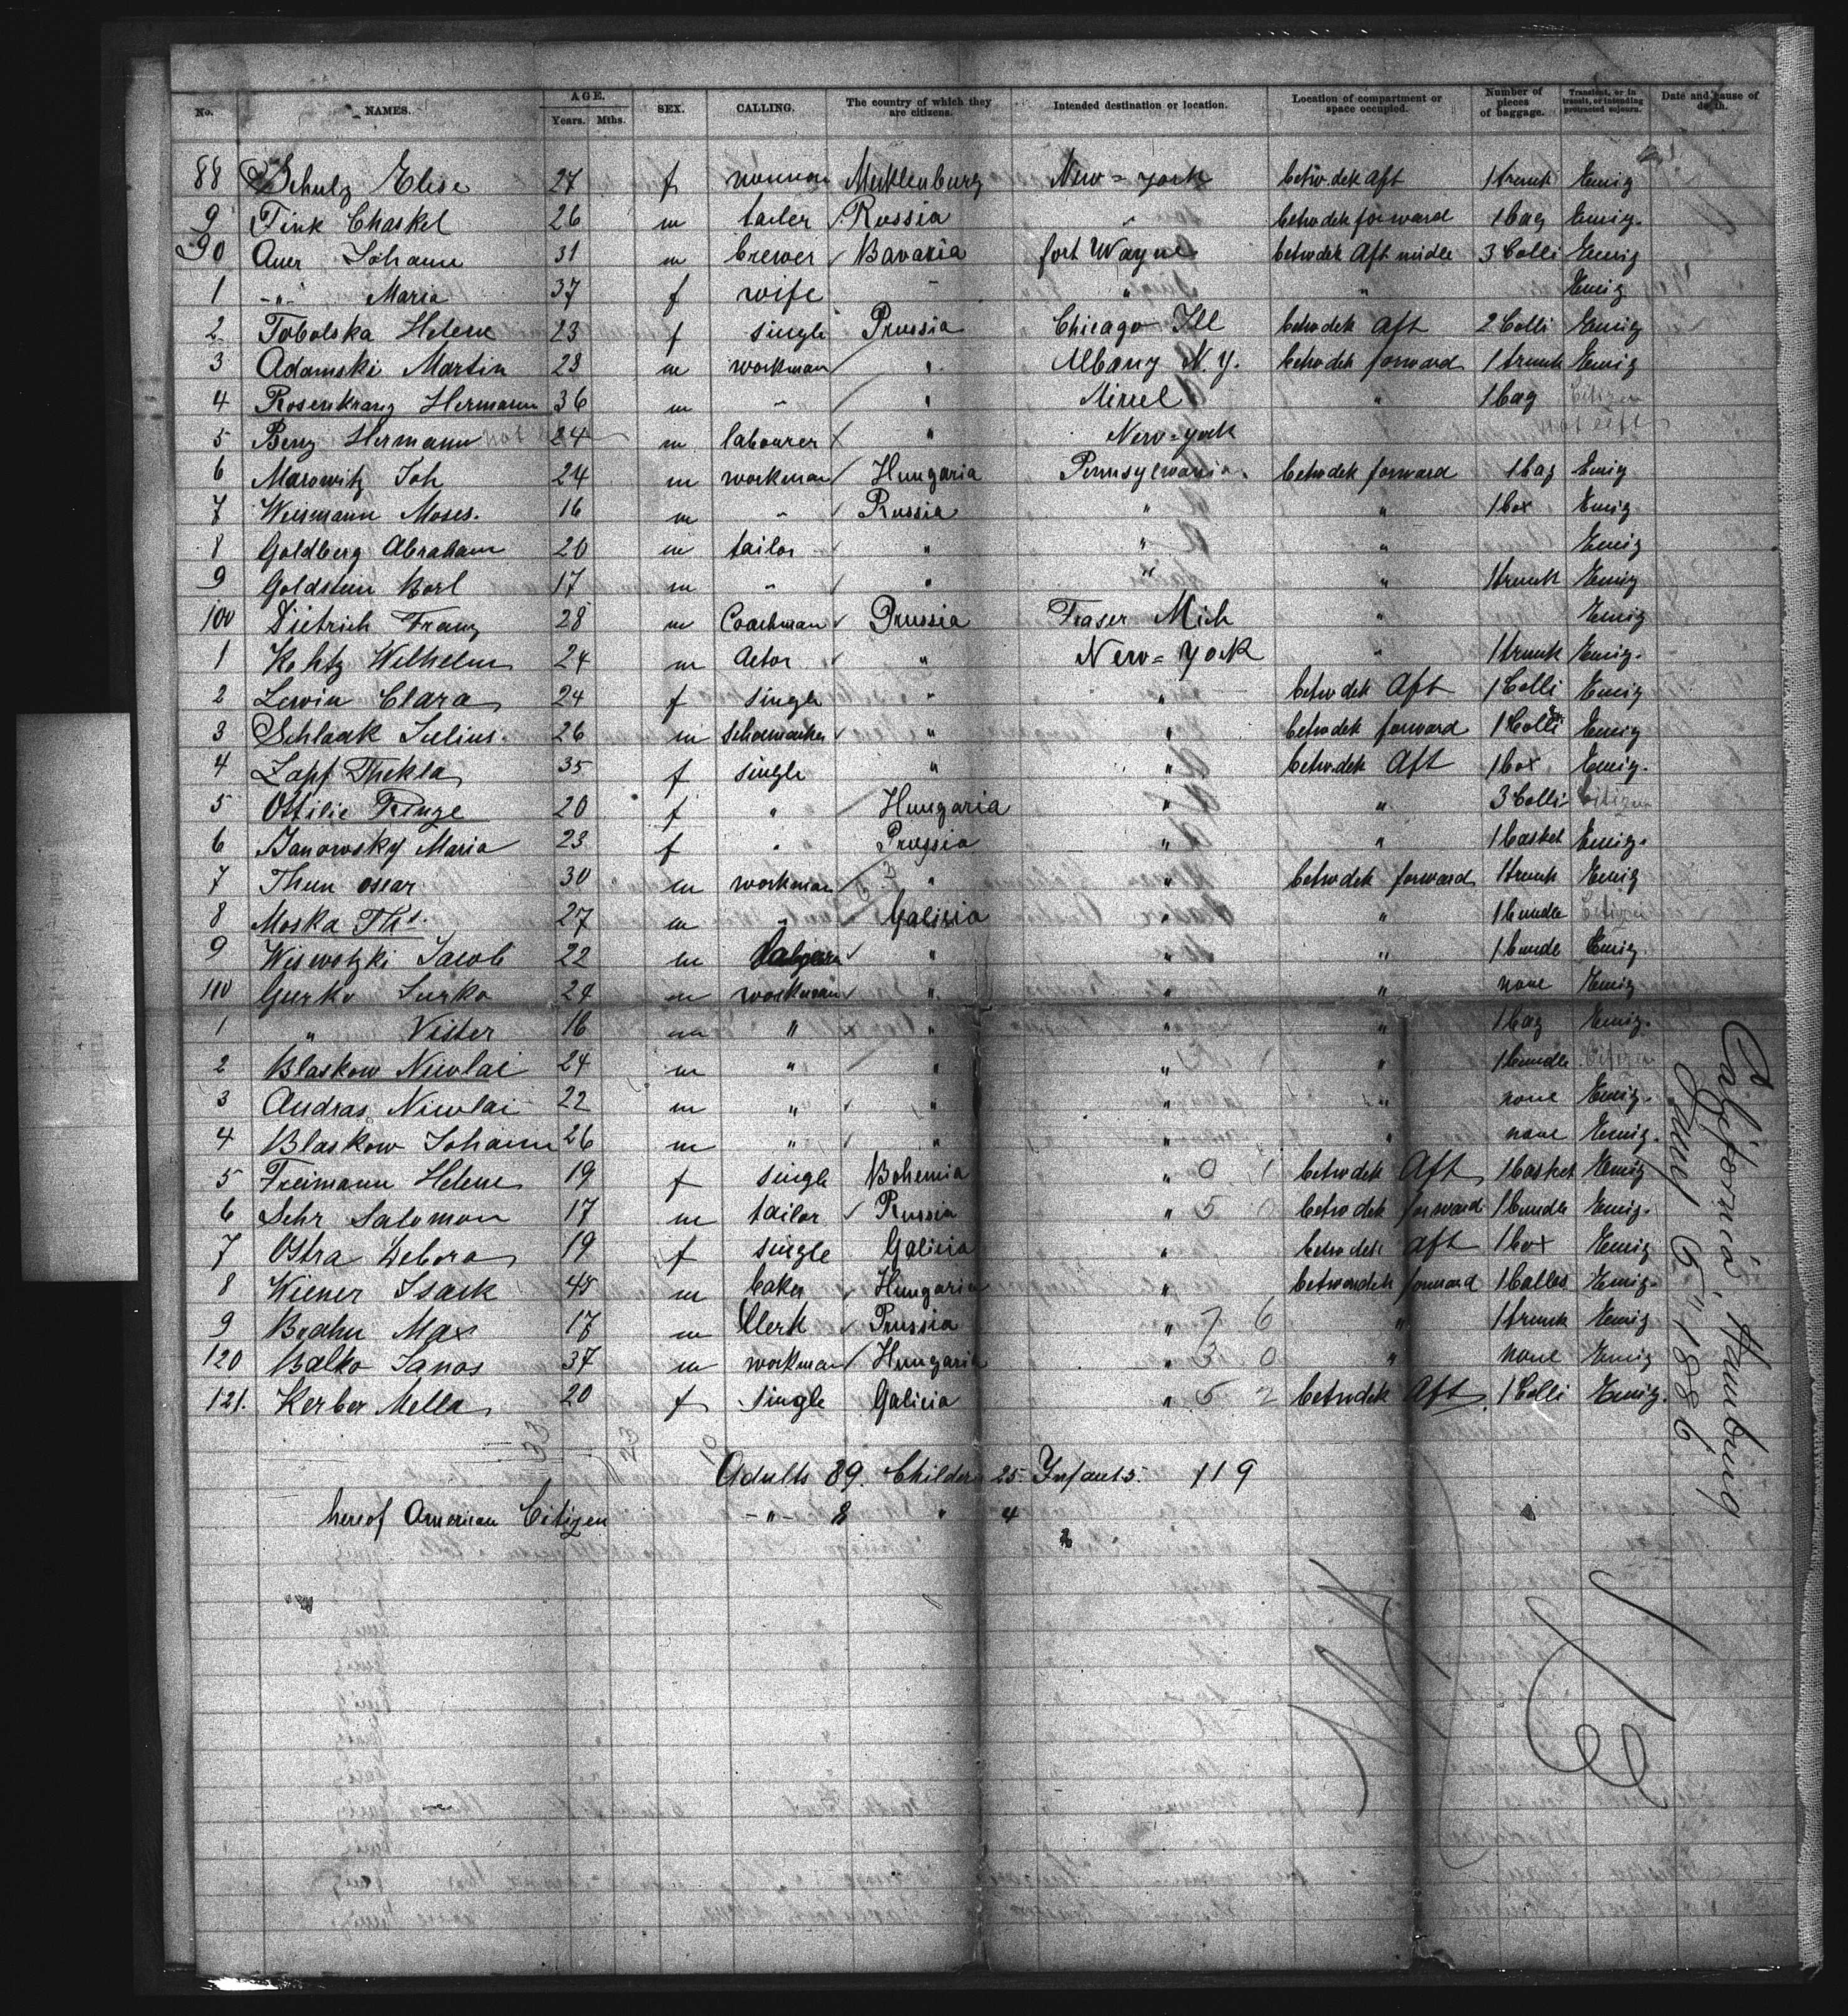 No. NAMES. AGE. Years. Mths. SEX. CALLING. The country of which they are citizens. Intended destination or location. Location of compartment or space occupied. Number of pieces of baggage. Transient, or in transit, or intending protracted sojourn. Date and cause of death.
88 Schulz Elise 27 f woman Mecklenburg New=york betw.dek Aft 1 trunk Emig
9 Fink Chaskel 26 m tailer Russia " betwdek forward 1 bag Emig.
90 Auer Johann 31 m brewer Bavaria fort Wayne betwdek Aft midle 3 Colli Emig
1 -"- Maria 37 f wife " " " Emig
2 Tobolska Helene 23 f single Prussia Chicago Ill betwdek Aft 2 Colli Emig
3 Adamski Martin 28 m workman " Albany N.Y. betwdek forward 1 trunk Emig
4 Rosenkranz Hermann 36 m " " " 1 bag Citizen
5 Benz Hermann 24 m labourer " New=york not left
6 Marowitz Joh 24 m workman Hungaria Pennsylvania. betwdek forward 1 bag Emig
7 Weismann Moses. 16 m " Russia " " 1 box Emig.
8 Goldberg Abraham 20 m tailor " " " Emig
9 Goldstein Borl 17 m " " " " 1 trunk Emig
100 Dietrich Franz 28 m Coachman Prussia Fraser Mich " Emig
1 Kohtz Wilhelm 24 m Actor " New=york " 1 trunk Emig.
2 Lewin Clara 24 f single " " betwdek Aft 1 Colli Emig
3 Schlaak Julius. 26 m schoemaker " " betwdek forward 1 Colli Emig
4 Zapf Thekla 35 f single " " betwdek Aft 1 box Emig.
5 Ottilie Ringe 20 f " Hungaria " " 3 Colli Citizen
6 Janowsky Maria 23 f " Prussia " " 1 basket Emig.
7 Thun oscar 30 m workman " " betwdek forward 1 trunk Emig
8 Moska Ths. 27 m " Galicia " " 1 bundle Citizen
9 Wiswotzki Jacob 22 m " " " 1 bundle Emig.
110 Gurko Jurko 24 m workman " " " none Emig
1 " Vister 16 m " " " " 1 bag Emig.
2 Blaskow Nicolai 24 m " " " " 1 bundle Citizen
3 Andras Nicolai 22 m " " " " none Emig.
4 Blaskow Johann 26 m " " " " none Emig.
5 Freimann Helene 19 f single Bohemia " 0 1 betwdek Aft 1 basket Emig
6 Sehr Salomon 17 m tailor Russia " 5 0 betwdek forward 1 bundle Emig.
7 Ostra Debora 19 f single Galicia " betwdek Aft 1 box Emig
8 Wiener Isaek 45 m baker Hungaria " betweendek forward 1 ballos Emig.
9 Brahn Max 17 m Clerk Prussia " 7 6 " 1 trunk Emig
120 Balko Janos 37 m workman Hungaria " 3 0 " none Emig
121. Kerber Mella 20 f single Galicia " 5 2 betwdek Aft 1 Colli Emig.
Adults 89. Childern 25 Infants 5. 119
hereof American Citizen -"- 8 " 4
California, Hamburg
July 6" 1886